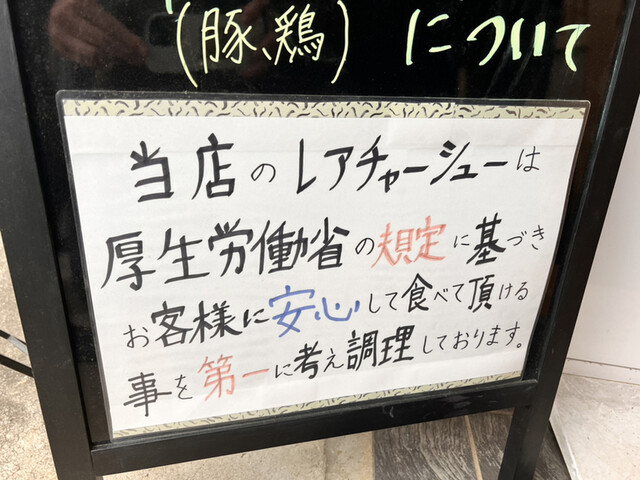 (豚、鶏) について
当店のレアチャーシューは
厚生労働省の規定に基づき
お客様に安心して食べて頂ける
事を第一に考え調理しております。